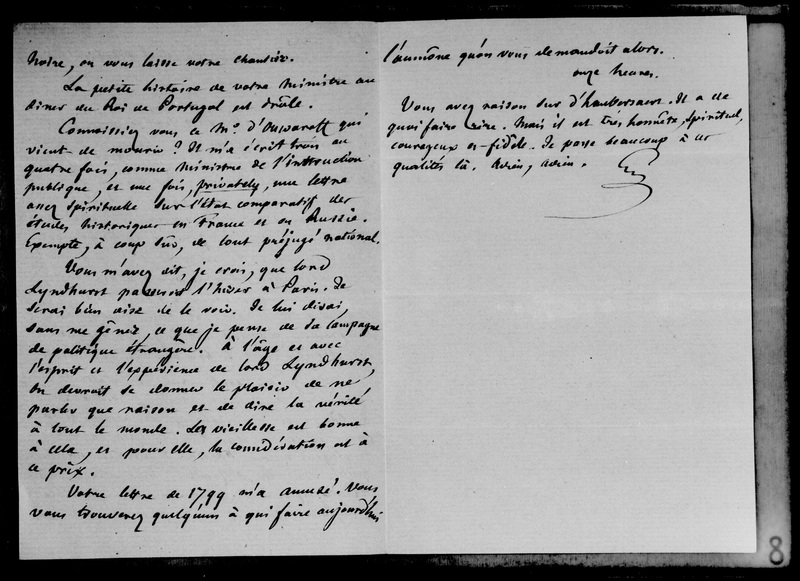 Noire, on vous laisse votre chantier.
La petite histoire de votre Ministre au
diner du Roi de Portugal est drôle.
Connaissiez vous ce Mr. d'Ouwaroff qui
vient de mourir ? Il m'a écrit trois ou
quatre fois, comme ministre de l'instruction
publique, et une fois, privately, une lettre
assez spirituelle sur l'état comparatif des
études historiques en France et en Russie.
Exempte, à coup sûr, de tout préjugé national.
Vous m'avez dit, je crois, que lord
Lyndhurst passeroit l'hiver à Paris. Je
serai bien aise de le voir. Je lui dirai,
sans me gêner, ce que je pense de sa campagne
de politique étrangère. à l'âge et avec
l'esprit et l'expérience de lord Lyndhurst,
on devroit se donner le plaisir de ne
parler que raison et de dire la vérité
à tout le monde. La vieillesse est bonne
à cela, et pour elle, la considération est à
ce prix.
Votre lettre de 1799 m'a amusé. Vous
vous trouverez quelqu'un à qui faire aujourd'hui
l'aumône qu'on vous demandoit alors.
onze heures.
Vous avez raison sur d'haubersaert. Il a de
quoi faire rire. Mais il est très honnête, spirituel,
courageux et fidèle. Je passe beaucoup à ces
qualités là. Adieu, adieu.
8